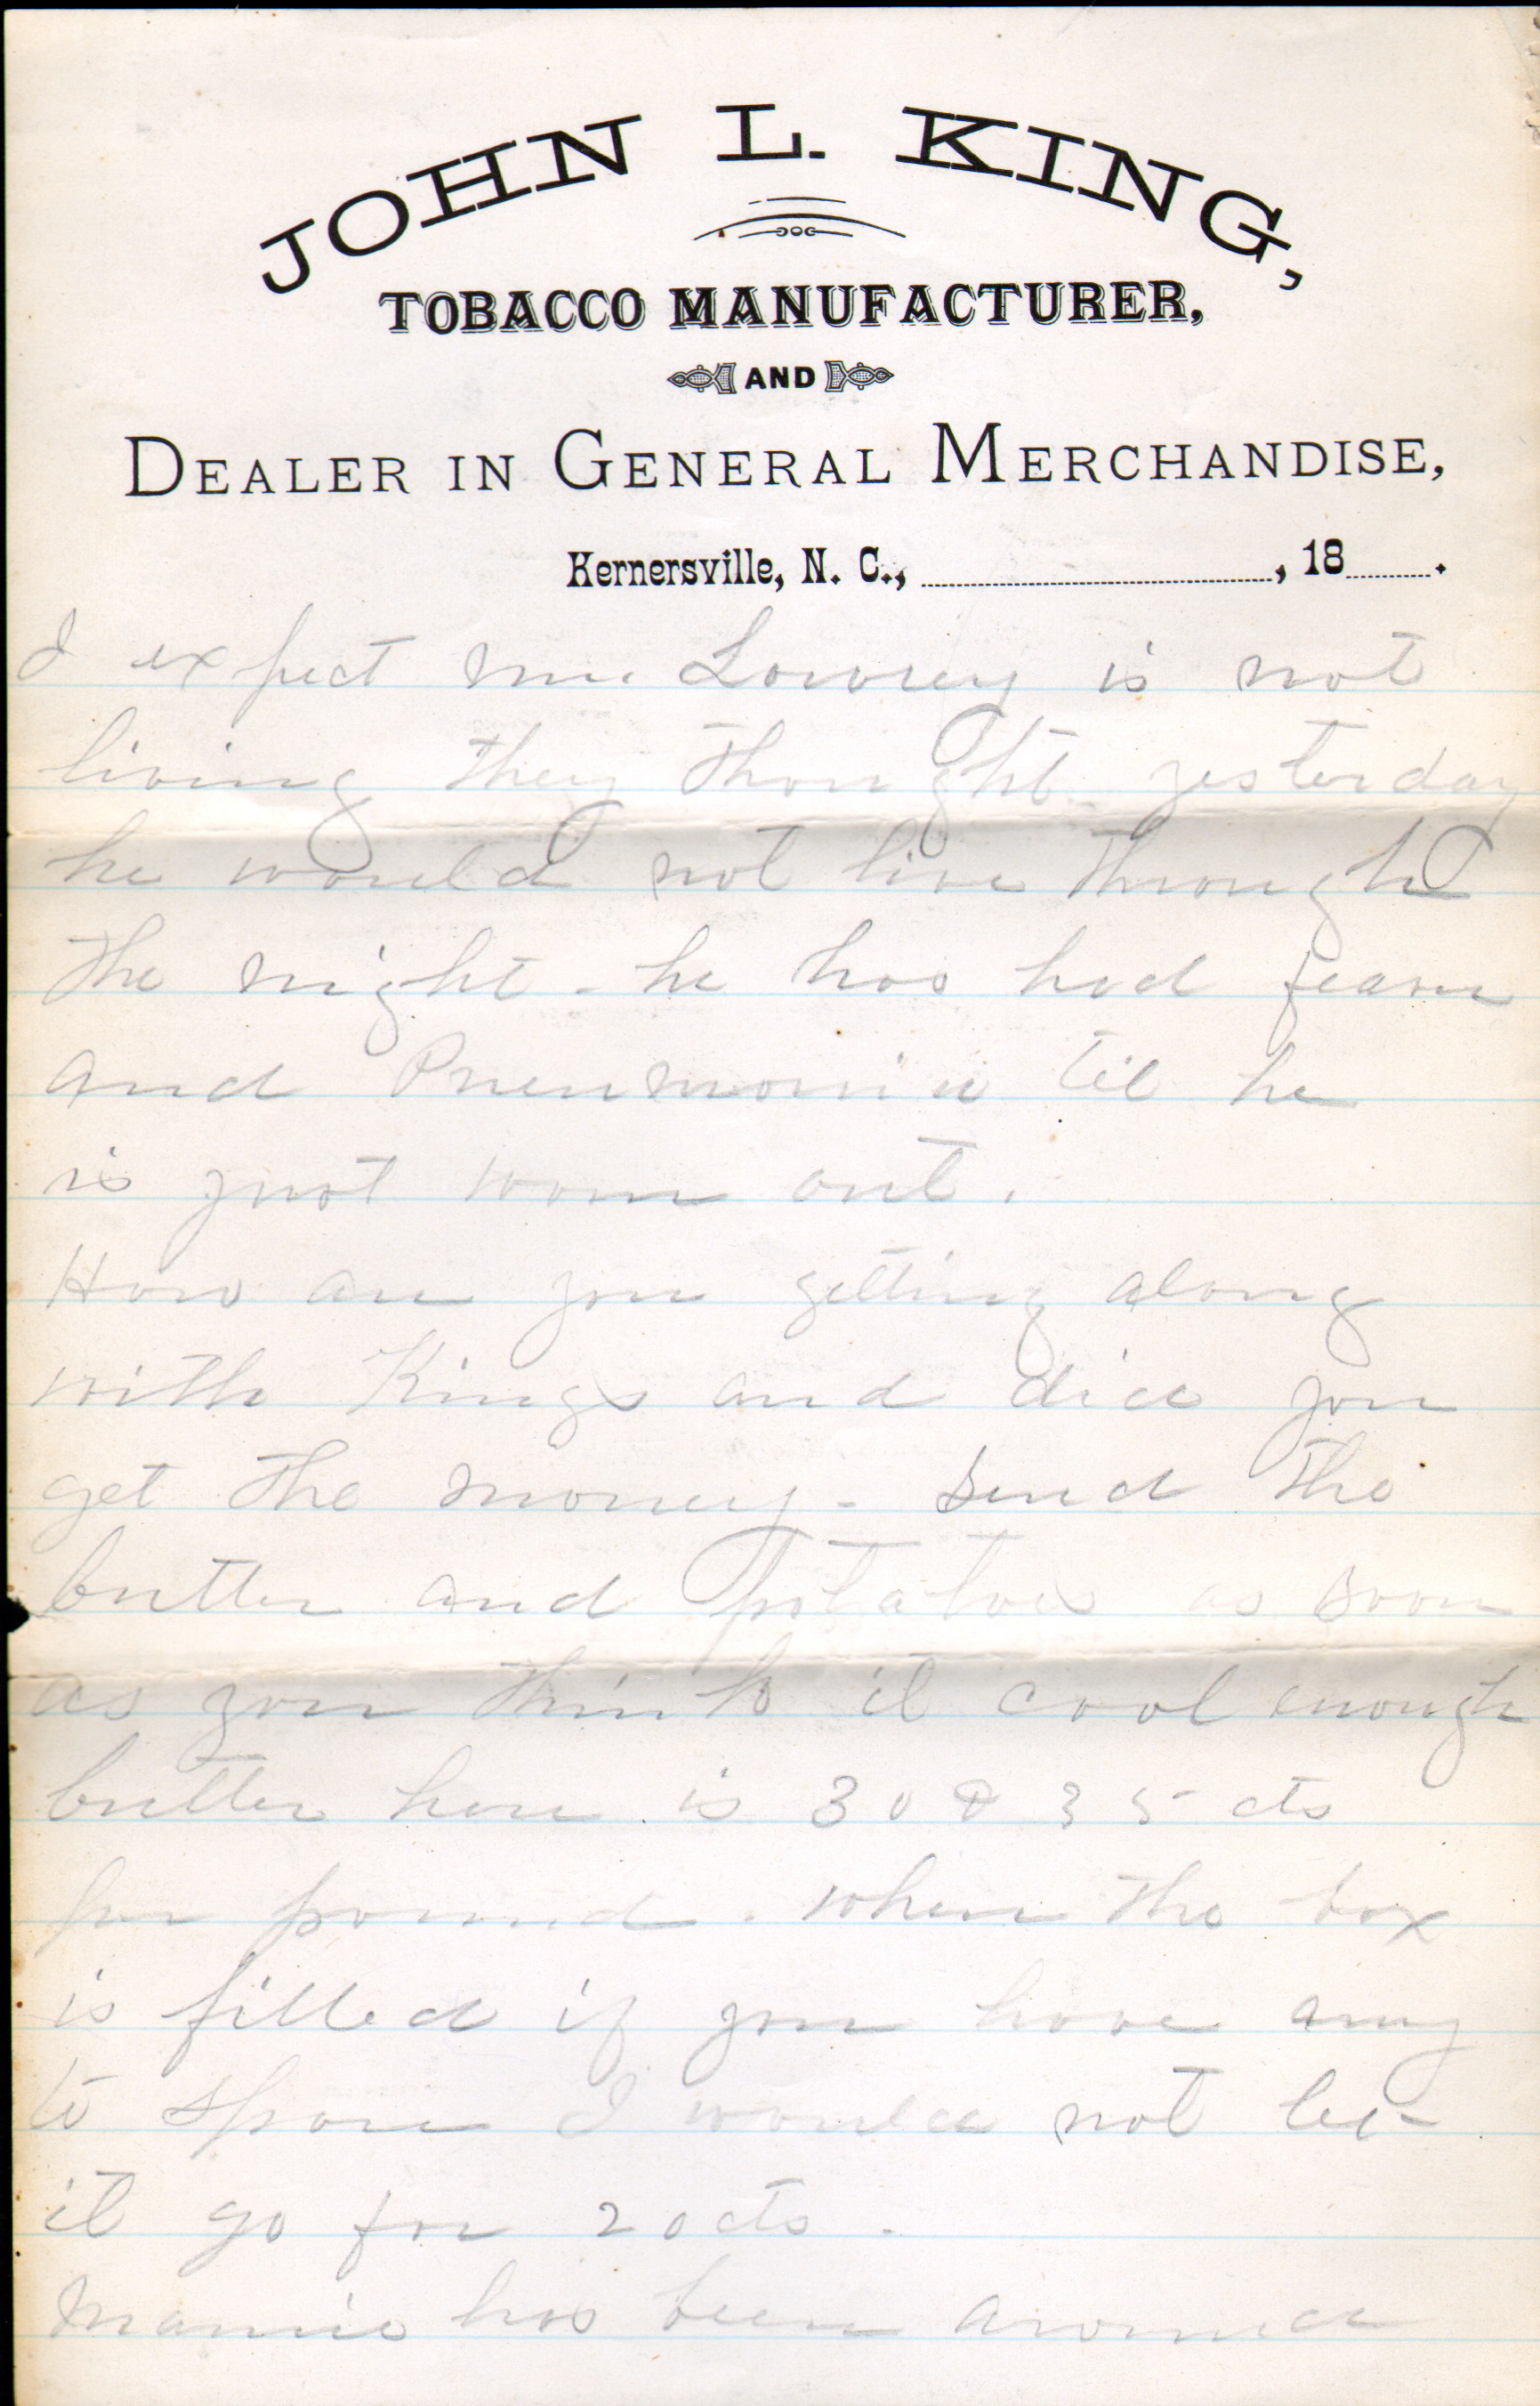 JOHN L. KING,
TOBACCO MANUFACTURER,
AND
DEALER IN GENERAL MERCHANDISE,
Kernersville, N. C., , 18 .
I expect Lowrey is not
living they thought yesterday
he would not live through
the night - he has had
and Pneumonia til he
is just worn out.
How are you getting along
with Kings and did you
get the money - Send the
butter and potatoes as soon
as you think it cool enough
butter here is 30 & 35 cts
per pound. when the box
is filled if you have any
to spare I would not let
it go for 20 cts.
Mamie has been around